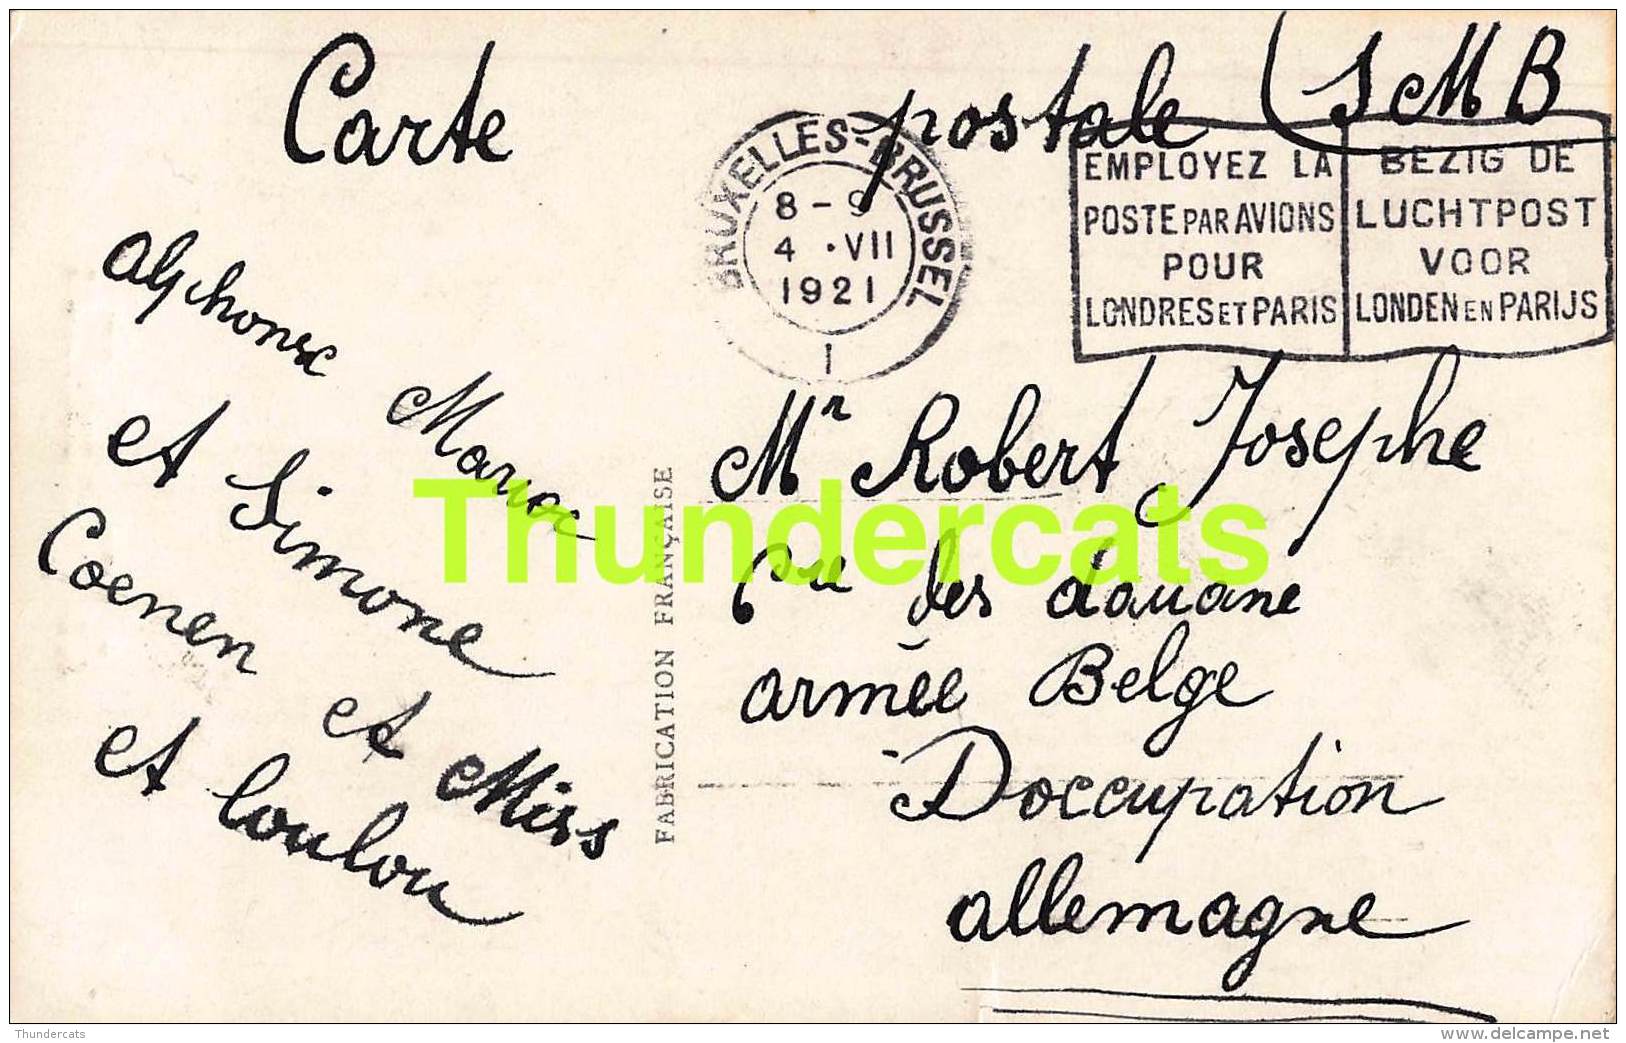 Carte postale (SMB
BRUXELLES-BRUSSEL
8 - 9
4 • VII
1921
1
EMPLOYEZ LA
POSTE PAR AVIONS
POUR
LONDRES ET PARIS
BEZIG DE
LUCHTPOST
VOOR
LONDEN EN PARIJS
alphonse Maria
et Simone
Coenen et Miss
et Loulou
FABRICATION FRANÇAISE
Mr Robert Josephe
des douane
armée Belge
Doccupation
allemagne
Thundercats
Thundercats
www.delcampe.net